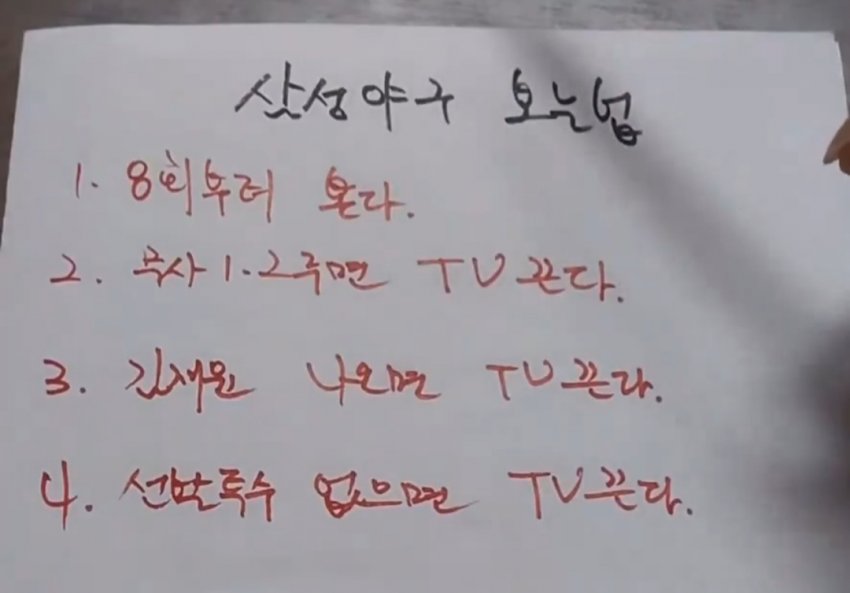 삼성야구 보는법
1. 8회부터 본다.
2. 무사 1.2루면 TV끈다.
3. 김재윤 나오면 TV끈다.
4. 선발투수 없으면 TV끈다.